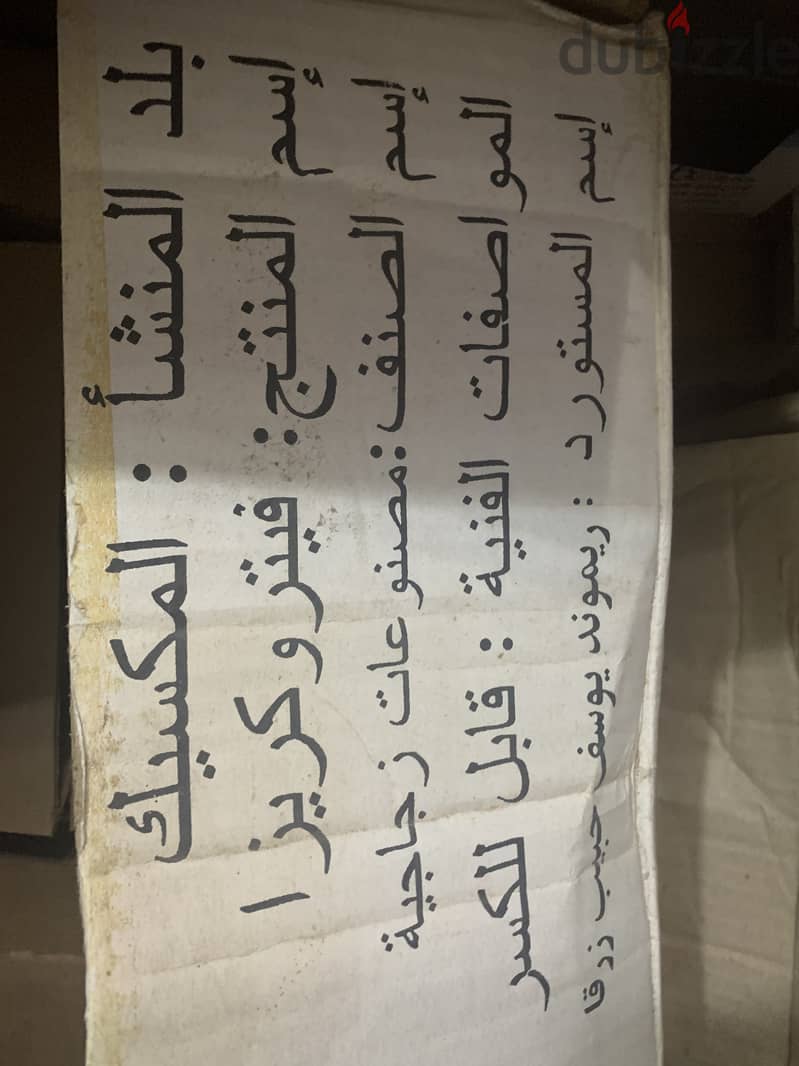 بلد المنشأ : المكسيك
إسم المنتج: فيتروكريزا
إسم الصنف: مصنوعات زجاجية
المواصفات الفنية : قابل للكسر
إسم المستورد : ريموند يوسف حبيب زرقا
dubizzle